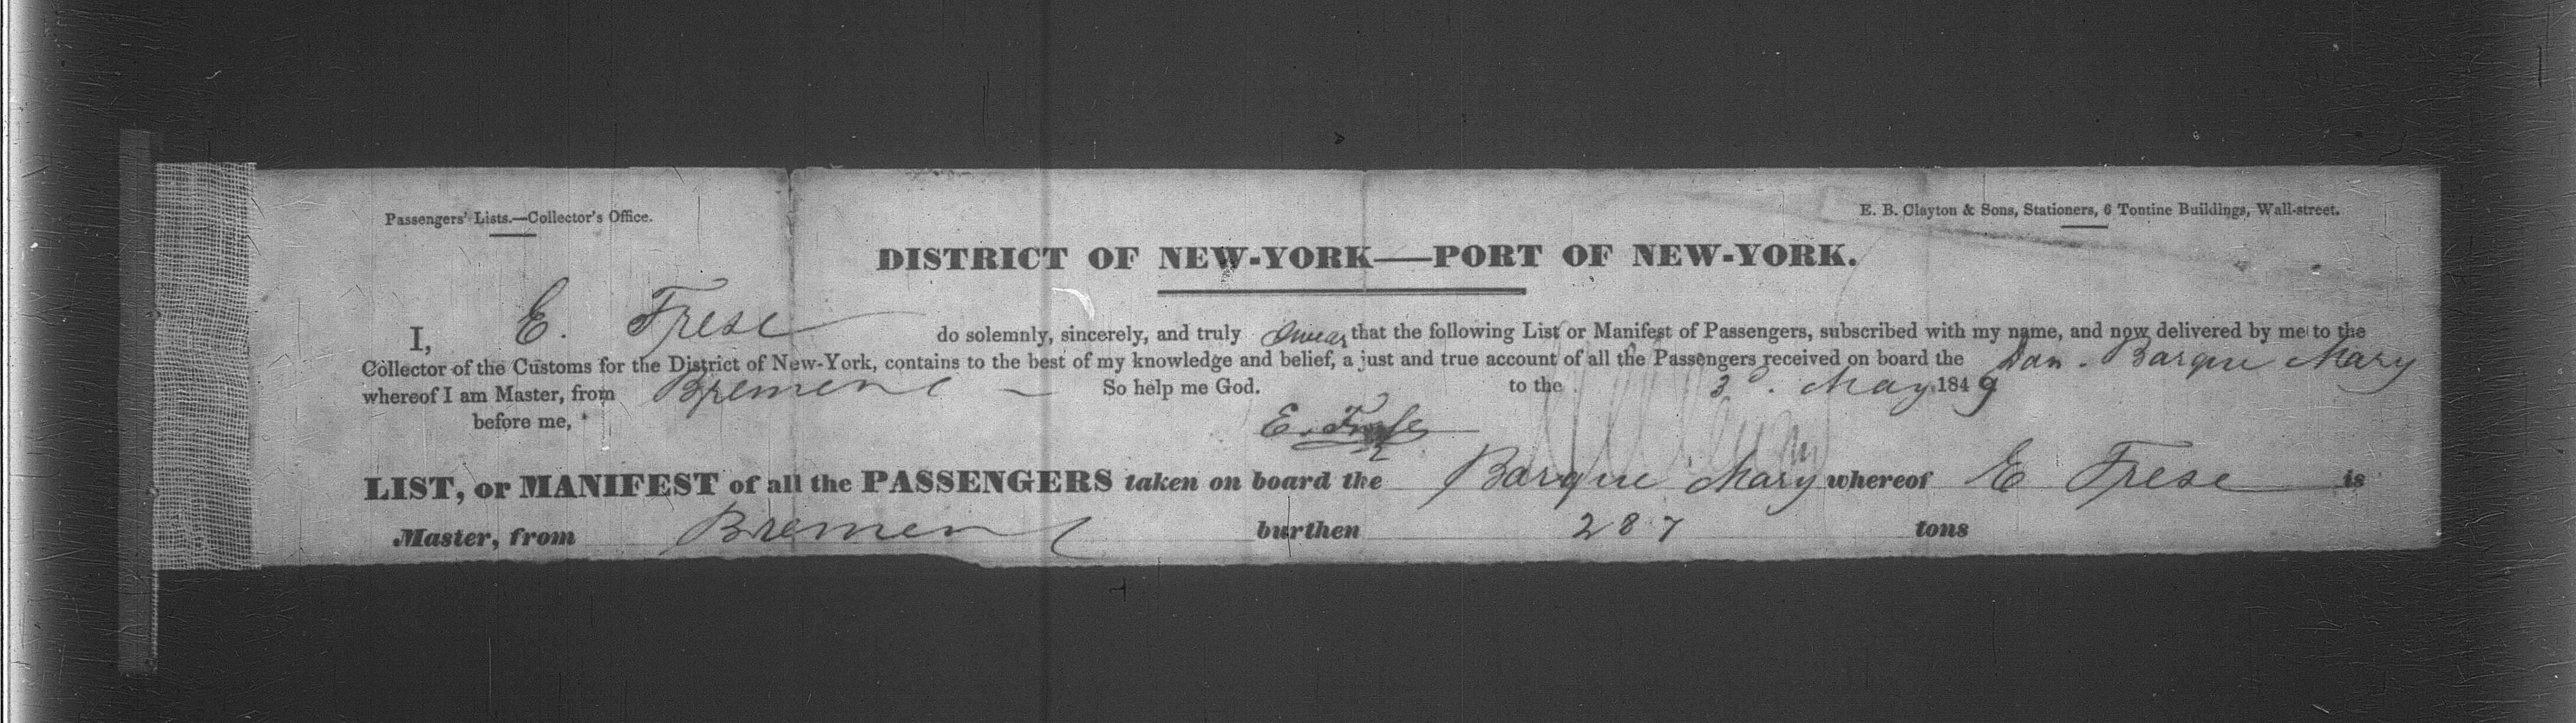 Passengers' Lists.—Collector's Office.
E. B. Clayton & Sons, Stationers, 6 Tontine Buildings, Wall-street.
DISTRICT OF NEW-YORK—PORT OF NEW-YORK.
I, E. Frese do solemnly, sincerely, and truly swear that the following List or Manifest of Passengers, subscribed with my name, and now delivered by me to the
Collector of the Customs for the District of New-York, contains to the best of my knowledge and belief, a just and true account of all the Passengers received on board the Dan. Barque Mary
whereof I am Master, from Bremen So help me God. to the 3d. May 1849
before me, E. Frese
LIST, or MANIFEST of all the PASSENGERS taken on board the Barque Mary whereof E Frese is
Master, from Bremen burthen 287 tons